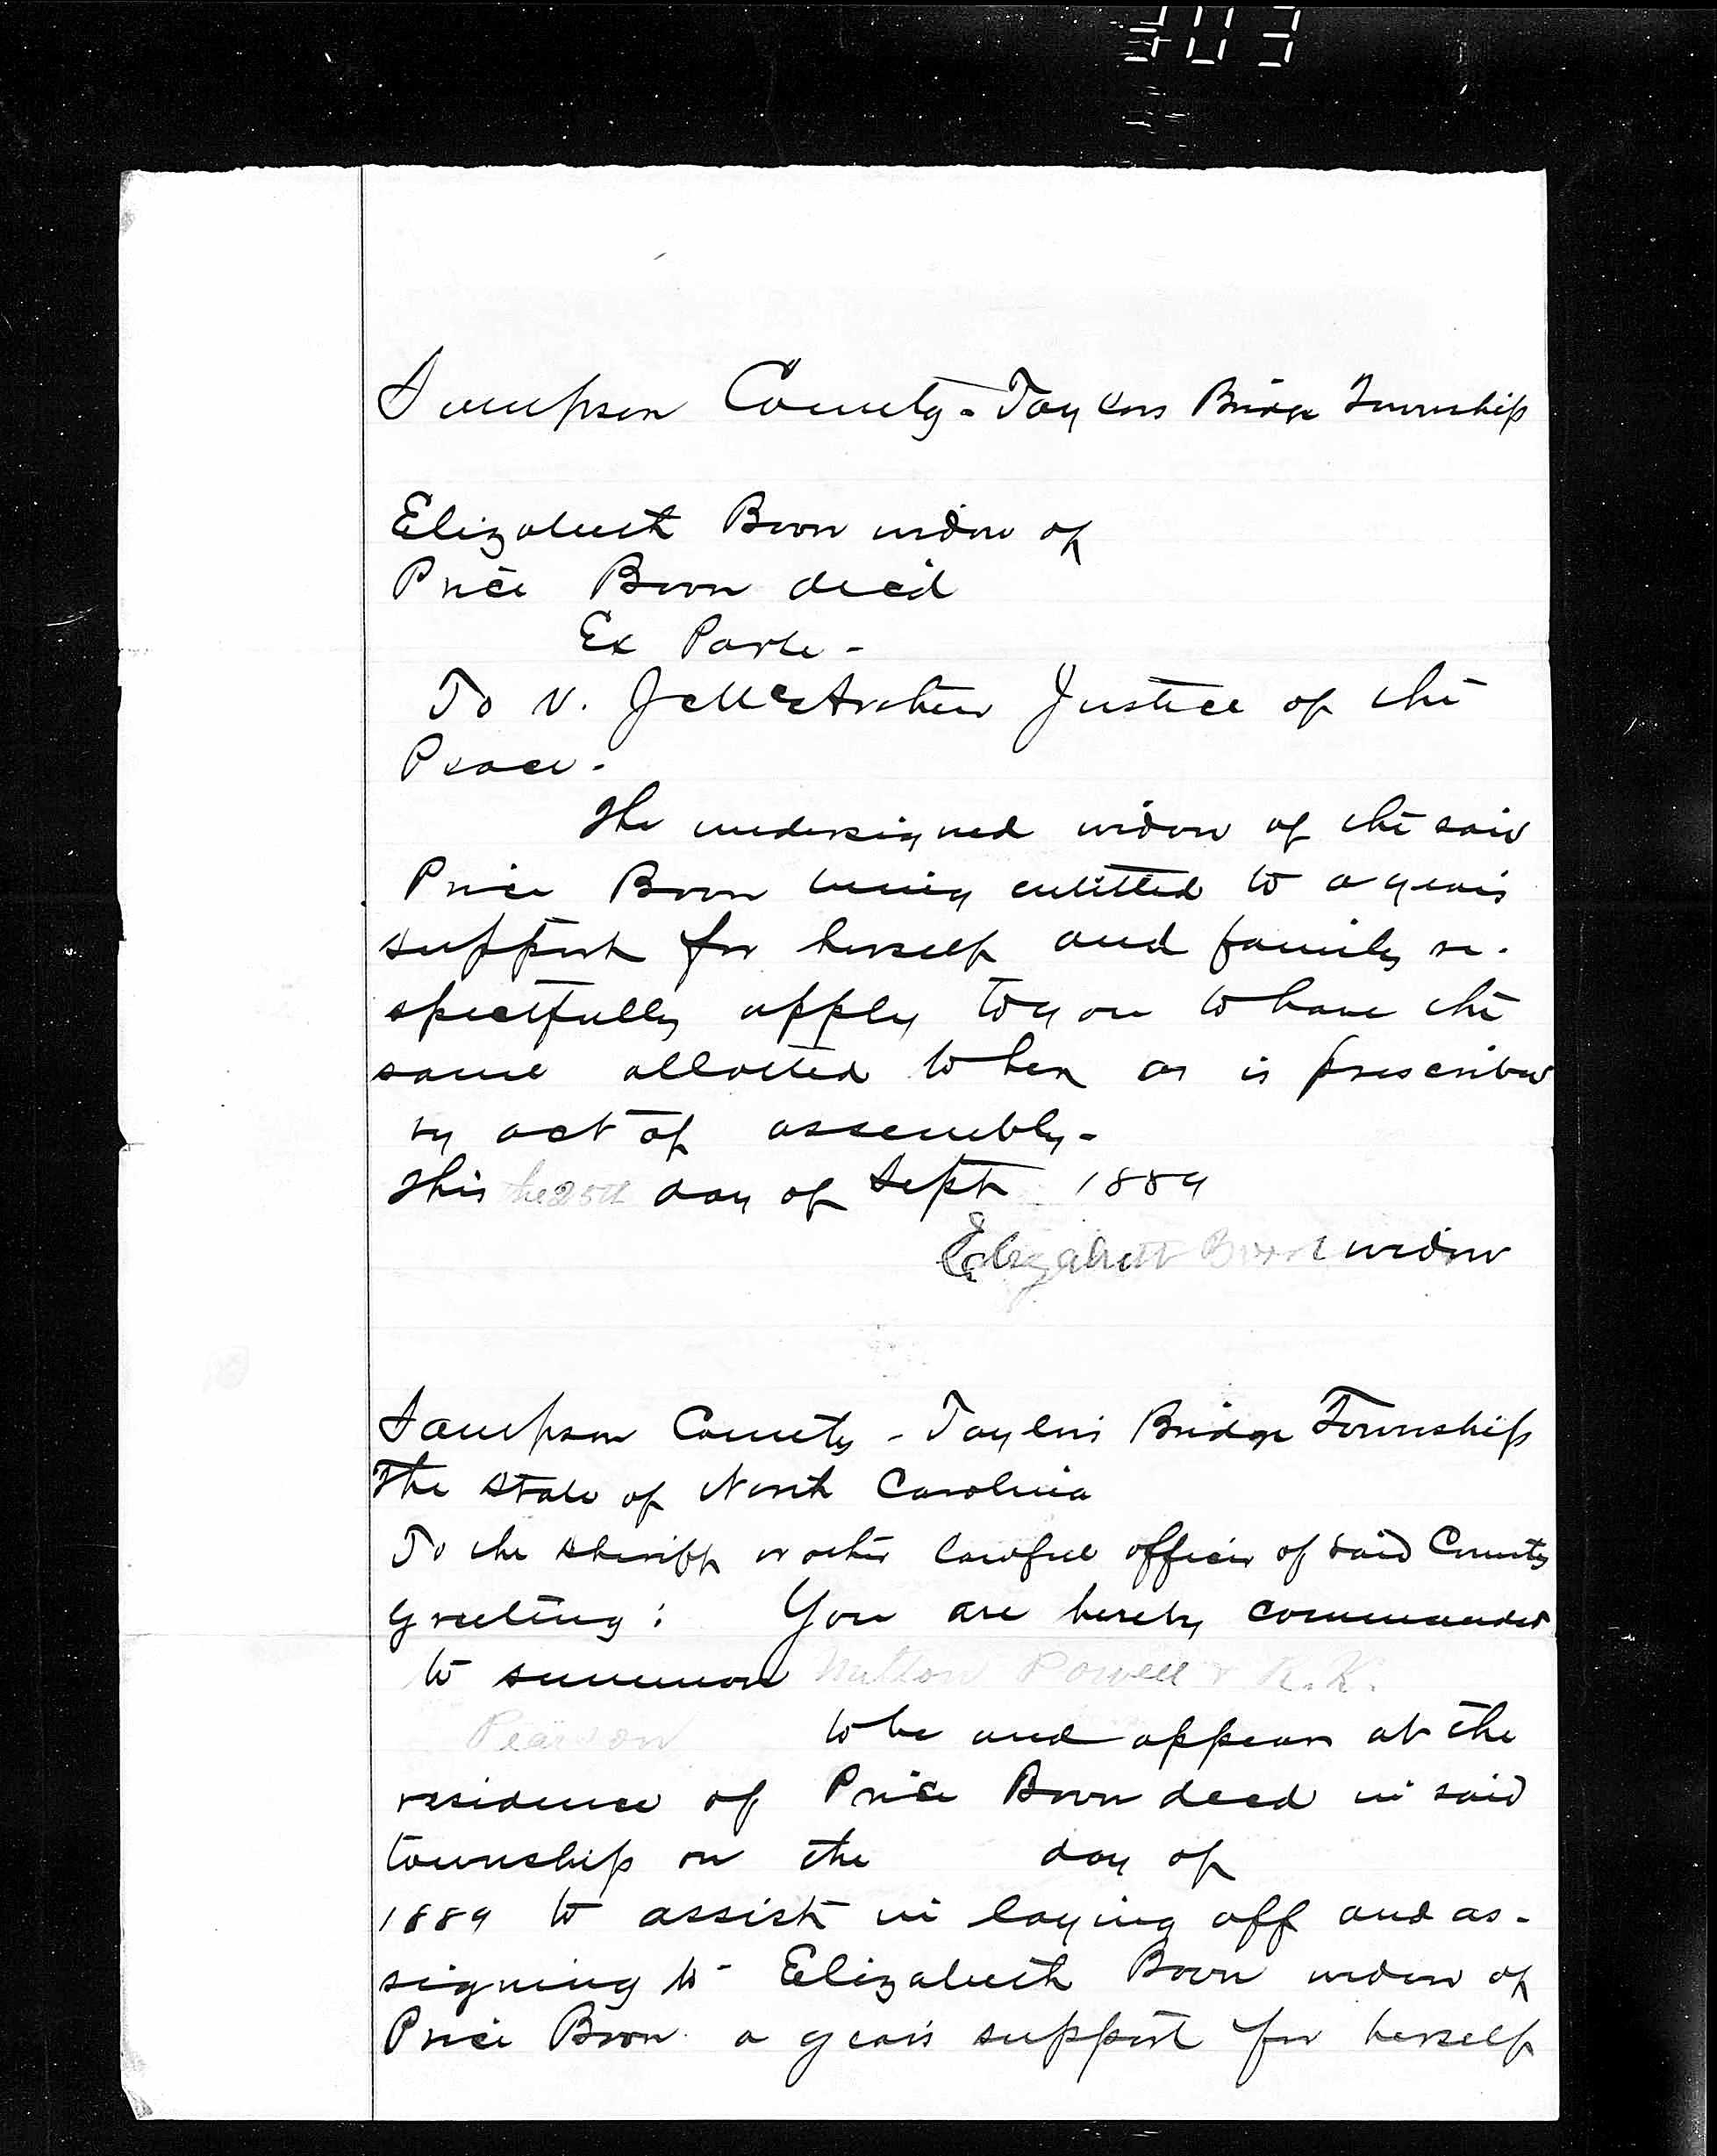 Sampson County - Taylors Bridge Township
Elizabeth Boon widow of
Price Boon dec'd
Ex Parte -
To V. J McArthur Justice of the
Peace -
The undersigned widow of the said
Price Boon being entitled to a year's
support for herself and family re-
spectfully apply to you to have the
same allotted to her as is prescribed
by act of assembly -
This the 25th day of Sept 1889
Elizabeth Boon widow
Sampson County - Taylors Bridge Township
The State of North Carolina
To the Sheriff or other lawful officer of said County
Greeting: You are hereby commanded
to summon Milton Powell & R. K.
Pearson to be and appear at the
residence of Price Boon decd in said
township on the day of
1889 to assist in laying off and as-
signing to Elizabeth Boon widow of
Price Boon a year's support for herself